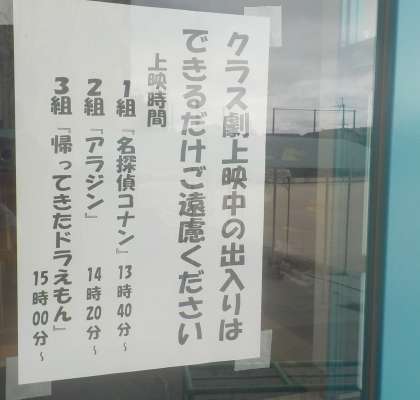 クラス劇上映中の出入りは
できるだけご遠慮ください
上映時間
1組『名探偵コナン』13時40分~
2組『アラジン』14時20分~
3組『帰ってきたドラえもん』
15時00分~